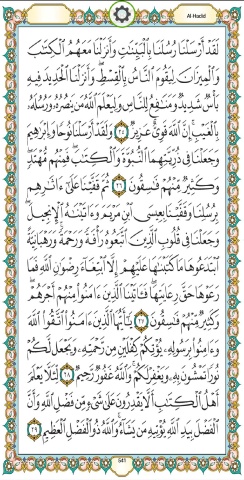 Al-Hadid
لَقَدْ أَرْسَلْنَا رُسُلَنَا بِالْبَيِّنَٰتِ وَأَنزَلْنَا مَعَهُمُ الْكِتَٰبَ
وَالْمِيزَانَ لِيَقُومَ النَّاسُ بِالْقِسْطِ وَأَنزَلْنَا الْحَدِيدَ فِيهِ
بَأْسٌ شَدِيدٌ وَمَنَٰفِعُ لِلنَّاسِ وَلِيَعْلَمَ اللَّهُ مَن يَنصُرُهُ وَرُسُلَهُ
بِالْغَيْبِ إِنَّ اللَّهَ قَوِيٌّ عَزِيزٌ ٢٥ وَلَقَدْ أَرْسَلْنَا نُوحًا وَإِبْرَٰهِيمَ
وَجَعَلْنَا فِي ذُرِّيَّتِهِمَا النُّبُوَّةَ وَالْكِتَٰبَ فَمِنْهُم مُّهْتَدٍ
وَكَثِيرٌ مِّنْهُمْ فَٰسِقُونَ ٢٦ ثُمَّ قَفَّيْنَا عَلَىٰ ءَاثَٰرِهِم
بِرُسُلِنَا وَقَفَّيْنَا بِعِيسَى ابْنِ مَرْيَمَ وَءَاتَيْنَٰهُ الْإِنجِيلَ
وَجَعَلْنَا فِي قُلُوبِ الَّذِينَ اتَّبَعُوهُ رَأْفَةً وَرَحْمَةً وَرَهْبَانِيَّةً
ابْتَدَعُوهَا مَا كَتَبْنَٰهَا عَلَيْهِمْ إِلَّا ابْتِغَاءَ رِضْوَٰنِ اللَّهِ فَمَا
رَعَوْهَا حَقَّ رِعَايَتِهَا فَـَٔاتَيْنَا الَّذِينَ ءَامَنُوا مِنْهُمْ أَجْرَهُمْ
وَكَثِيرٌ مِّنْهُمْ فَٰسِقُونَ ٢٧ يَٰٓأَيُّهَا الَّذِينَ ءَامَنُوا اتَّقُوا اللَّهَ
وَءَامِنُوا بِرَسُولِهِ يُؤْتِكُمْ كِفْلَيْنِ مِن رَّحْمَتِهِ وَيَجْعَل لَّكُمْ
نُورًا تَمْشُونَ بِهِ وَيَغْفِرْ لَكُمْ وَاللَّهُ غَفُورٌ رَّحِيمٌ ٢٨ لِّئَلَّا يَعْلَمَ
أَهْلُ الْكِتَٰبِ أَلَّا يَقْدِرُونَ عَلَىٰ شَيْءٍ مِّن فَضْلِ اللَّهِ وَأَنَّ
الْفَضْلَ بِيَدِ اللَّهِ يُؤْتِيهِ مَن يَشَاءُ وَاللَّهُ ذُو الْفَضْلِ الْعَظِيمِ ٢٩
541